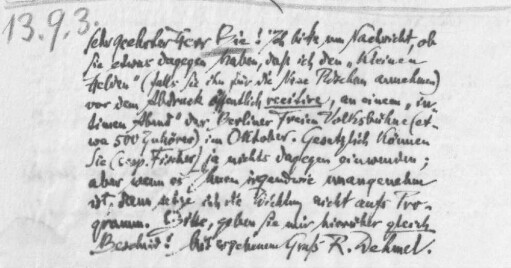 13.9.3.
Sehr geehrter Herr Bie! Ich bitte um Nachricht, ob
Sie etwas dagegen haben, daß ich den „Kleinen
Helden" (falls Sie ihn für die Neue Rundschau annehmen)
vor dem Abdruck öffentlich recitire, an einem „in-
timen Abend" der Berliner Freien Volksbühne (et-
wa 500 Zuhörer) im Oktober. Gesetzlich können
Sie (resp. Fischer) ja nichts dagegen einwenden;
aber wenn es Ihnen irgendwie unangenehm
ist, dann setze ich die Dichtung nicht aufs Pro-
gramm. Bitte, geben Sie mir hierüber gleich
Bescheid! Mit ergebenem Gruß R. Dehmel.